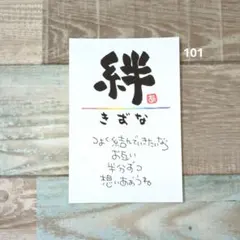 101
絆
きずな
つよく結んでいきたいなら
お互い
半分ずつ
想いあおうね